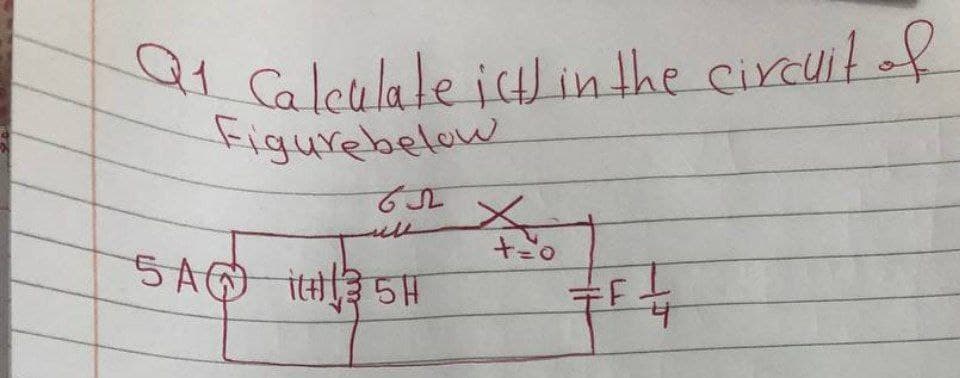 Q1 Calculate i(t) in the circuit of
Figure below
6Ω
t=0
5A i(t) 5H F 1/4